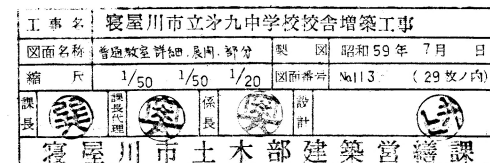 工事名 寝屋川市立才九中学校校舎増築工事
図面名称 普通教室詳細.展開.部分 製図 昭和59年 7月 日
縮尺 1/50 1/50 1/20 図面番号 No113 (29枚ノ内)
課長 課長代理 係長 設計
寝屋川市土木部建築営繕課